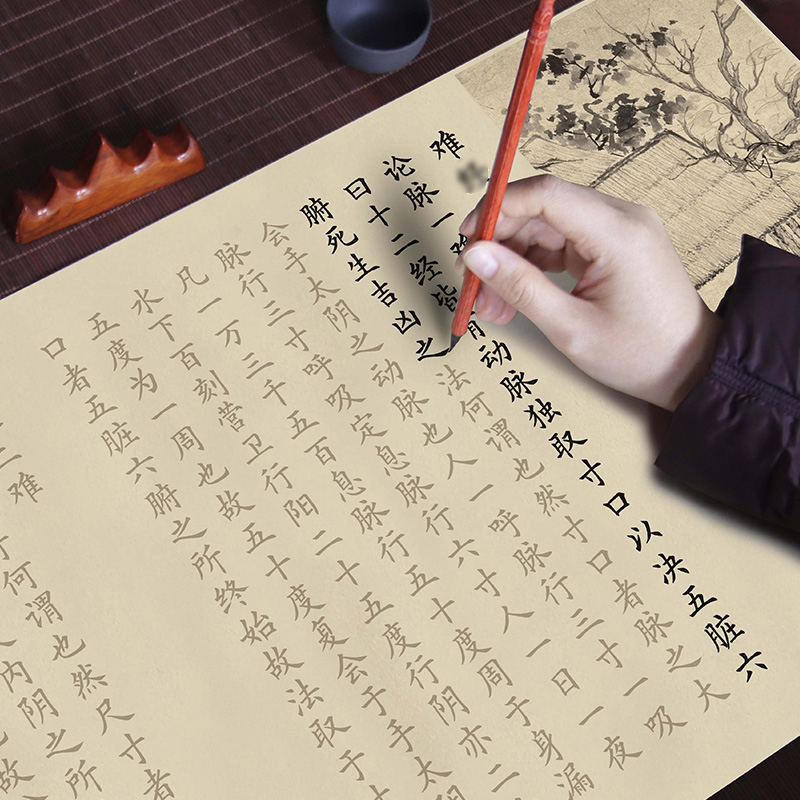 难
论脉一难
曰十二经皆有动脉独取寸口以决五脏六
腑死生吉凶之法何谓也然寸口者脉之大
会手太阴之动脉也人一呼脉行三寸一吸
脉行三寸呼吸定息脉行六寸人一日一夜
凡一万三千五百息脉行五十度周于身漏
水下百刻营卫行阳二十五度行阴亦二
五度为一周也故五十度复会于手太阴
口者五脏六腑之所终始故法取于
二难
何谓也然尺寸者
内阴之所
故